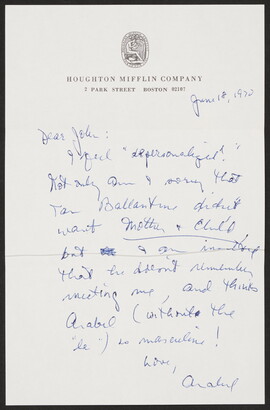 HOUGHTON MIFFLIN COMPANY
2 PARK STREET BOSTON 02107
June 18, 1970
Dear John:
I feel "depersonalized"!
Not only am I sorry that
Ian Ballantine didn't
want Mother & Child
but I am
that he doesn't remember
meeting me, and thinks
Arabel (without the
"le") so masculine!
Love,
Arabel